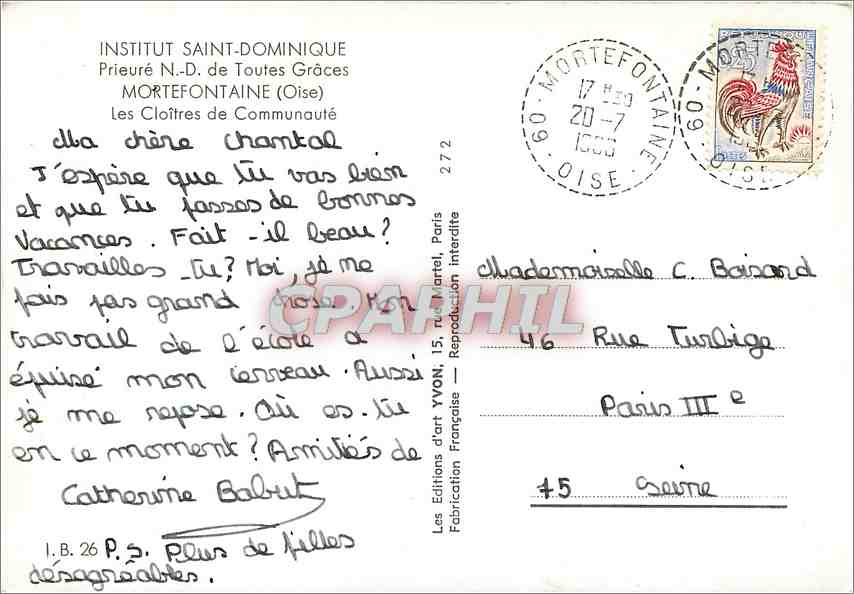 INSTITUT SAINT-DOMINIQUE
Prieuré N.-D. de Toutes Grâces
MORTEFONTAINE (Oise)
Les Cloîtres de Communauté
Ma chère Chantal
J'espère que tu vas bien
et que tu passes de bonnes
vacances. Fait-il beau?
Travailles-tu? Moi, je ne
fais pas grand chose. Mon
travail de l'école a
épuisé mon cerveau. Aussi
je me repose. Où es-tu
en ce moment? Amitiés de
Catherine Babut
I.B. 26 P.S. Plus de filles
désagréables.
272
Les Editions d'art YVON, 15, rue Martel, Paris
Fabrication Française — Reproduction interdite
60 - MORTEFONTAINE - OISE
17 H30
20-7
60 - MORTE
OISE
Mademoiselle C. Boisard
46 Rue Turbige
Paris IIIe
75 Seine
CPAPHIL